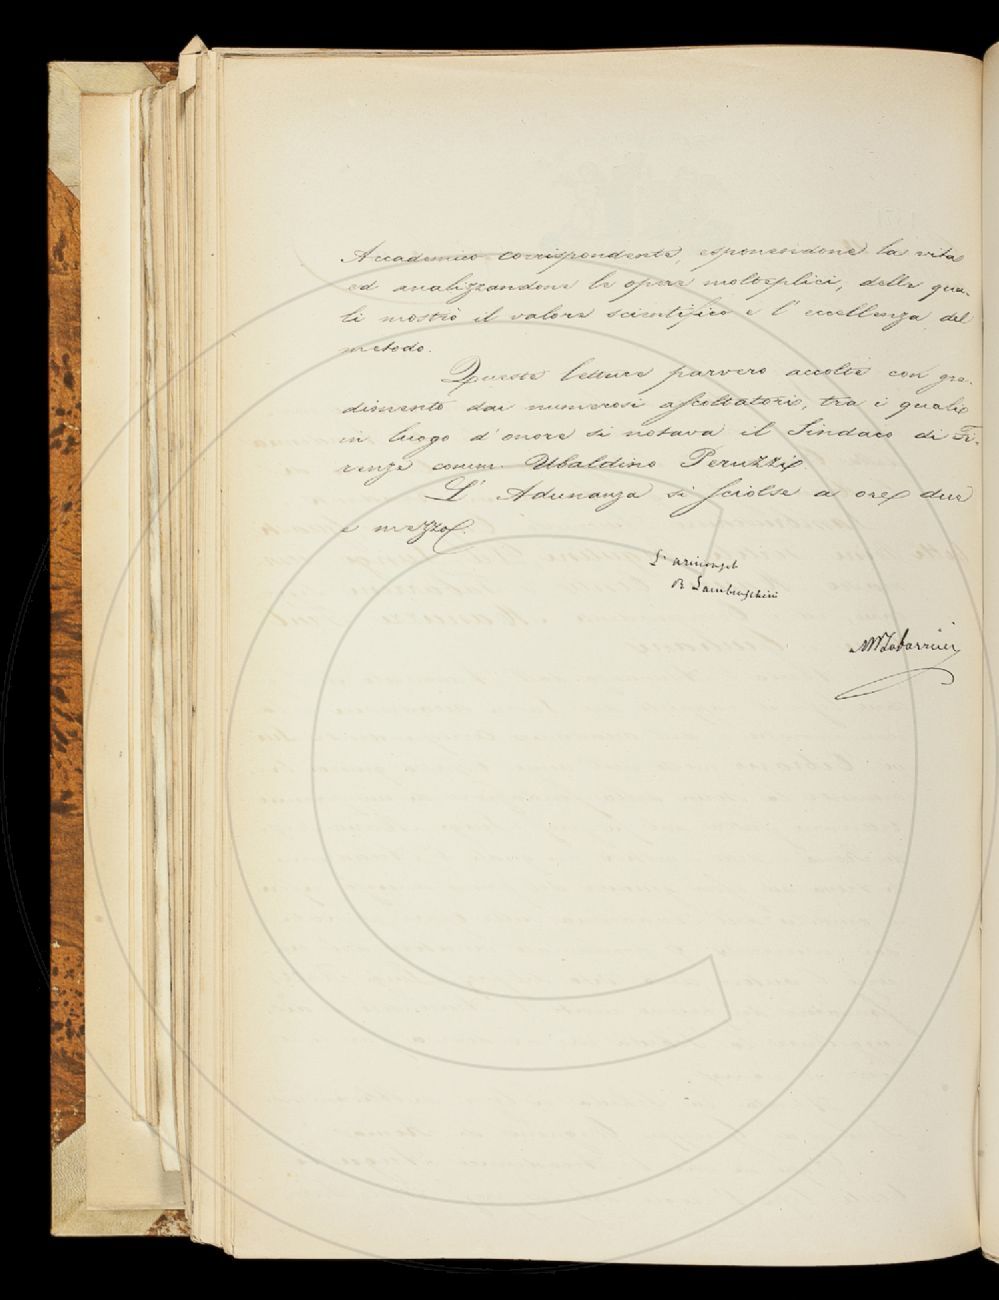 Accademico corrispondente, esponendone la vita
ed analizzandone le opere molteplici, delle qua-
li mostrò il valore scientifico e l'eccellenza del
metodo.
Queste letture parvero accolte con gra-
dimento dai numerosi ascoltatori, tra i quali
in luogo d'onore si notava il Sindaco di Fi-
renze comm. Ubaldino Peruzzi.
L'Adunanza si sciolse a ore due
e mezzo.
R Lambruschini
MTabarrini